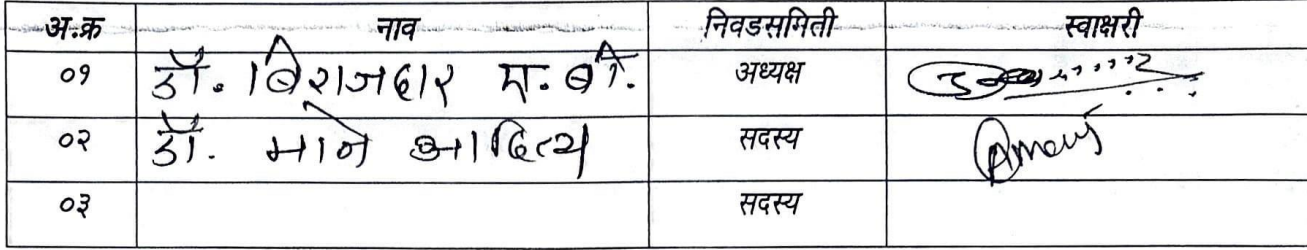 अ.क्र नाव निवडसमिती स्वाक्षरी
०१ डॉ. बिराजदार एम. बी. अध्यक्ष
०२ डॉ. माने आदित्य सदस्य
०३ सदस्य